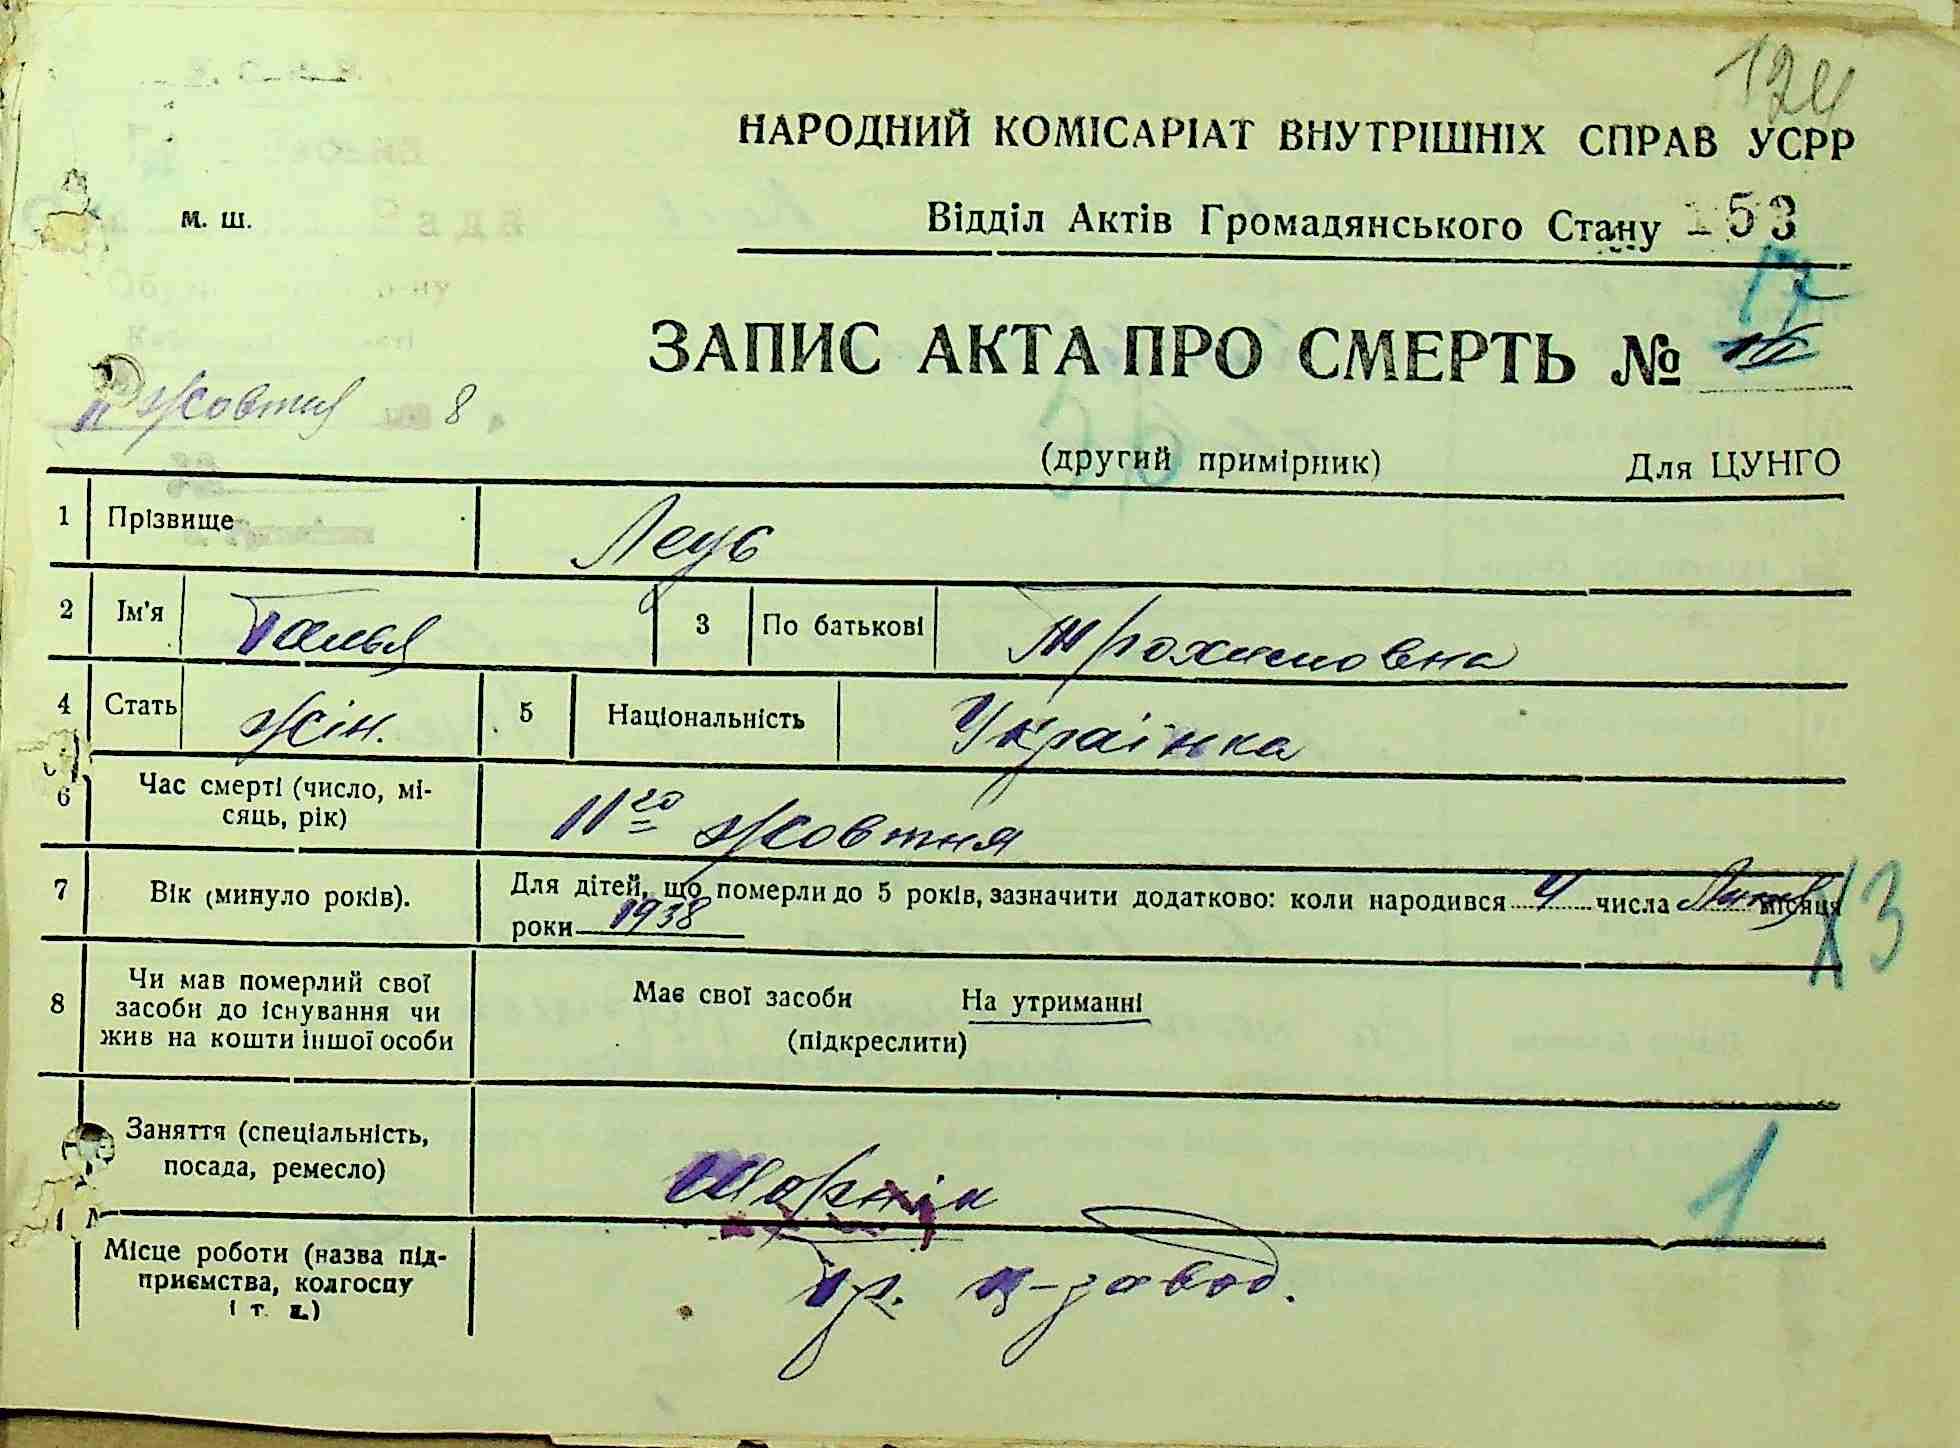 124
НАРОДНИЙ КОМІСАРІАТ ВНУТРІШНІХ СПРАВ УСРР
м. ш.
Відділ Актів Громадянського Стану 153
17
ЗАПИС АКТА ПРО СМЕРТЬ №
11 жовтня 8
(другий примірник) Для ЦУНГО
1 Прізвище Леус
2 Ім'я Галья 3 По батькові Трохимовна
4 Стать жін. 5 Національність Українка
6 Час смерті (число, мі-
сяць, рік) 11го жовтня
7 Вік (минуло років). Для дітей, що померли до 5 років, зазначити додатково: коли народився 4 числа місяця
роки 1938
Х3
8 Чи мав померлий свої
засоби до існування чи
жив на кошти іншої особи
Має свої засоби На утриманні
(підкреслити)
Заняття (спеціальність,
посада, ремесло)
1
Місце роботи (назва під-
приємства, колгоспу
і т. д.)
Гр. ц-завод.